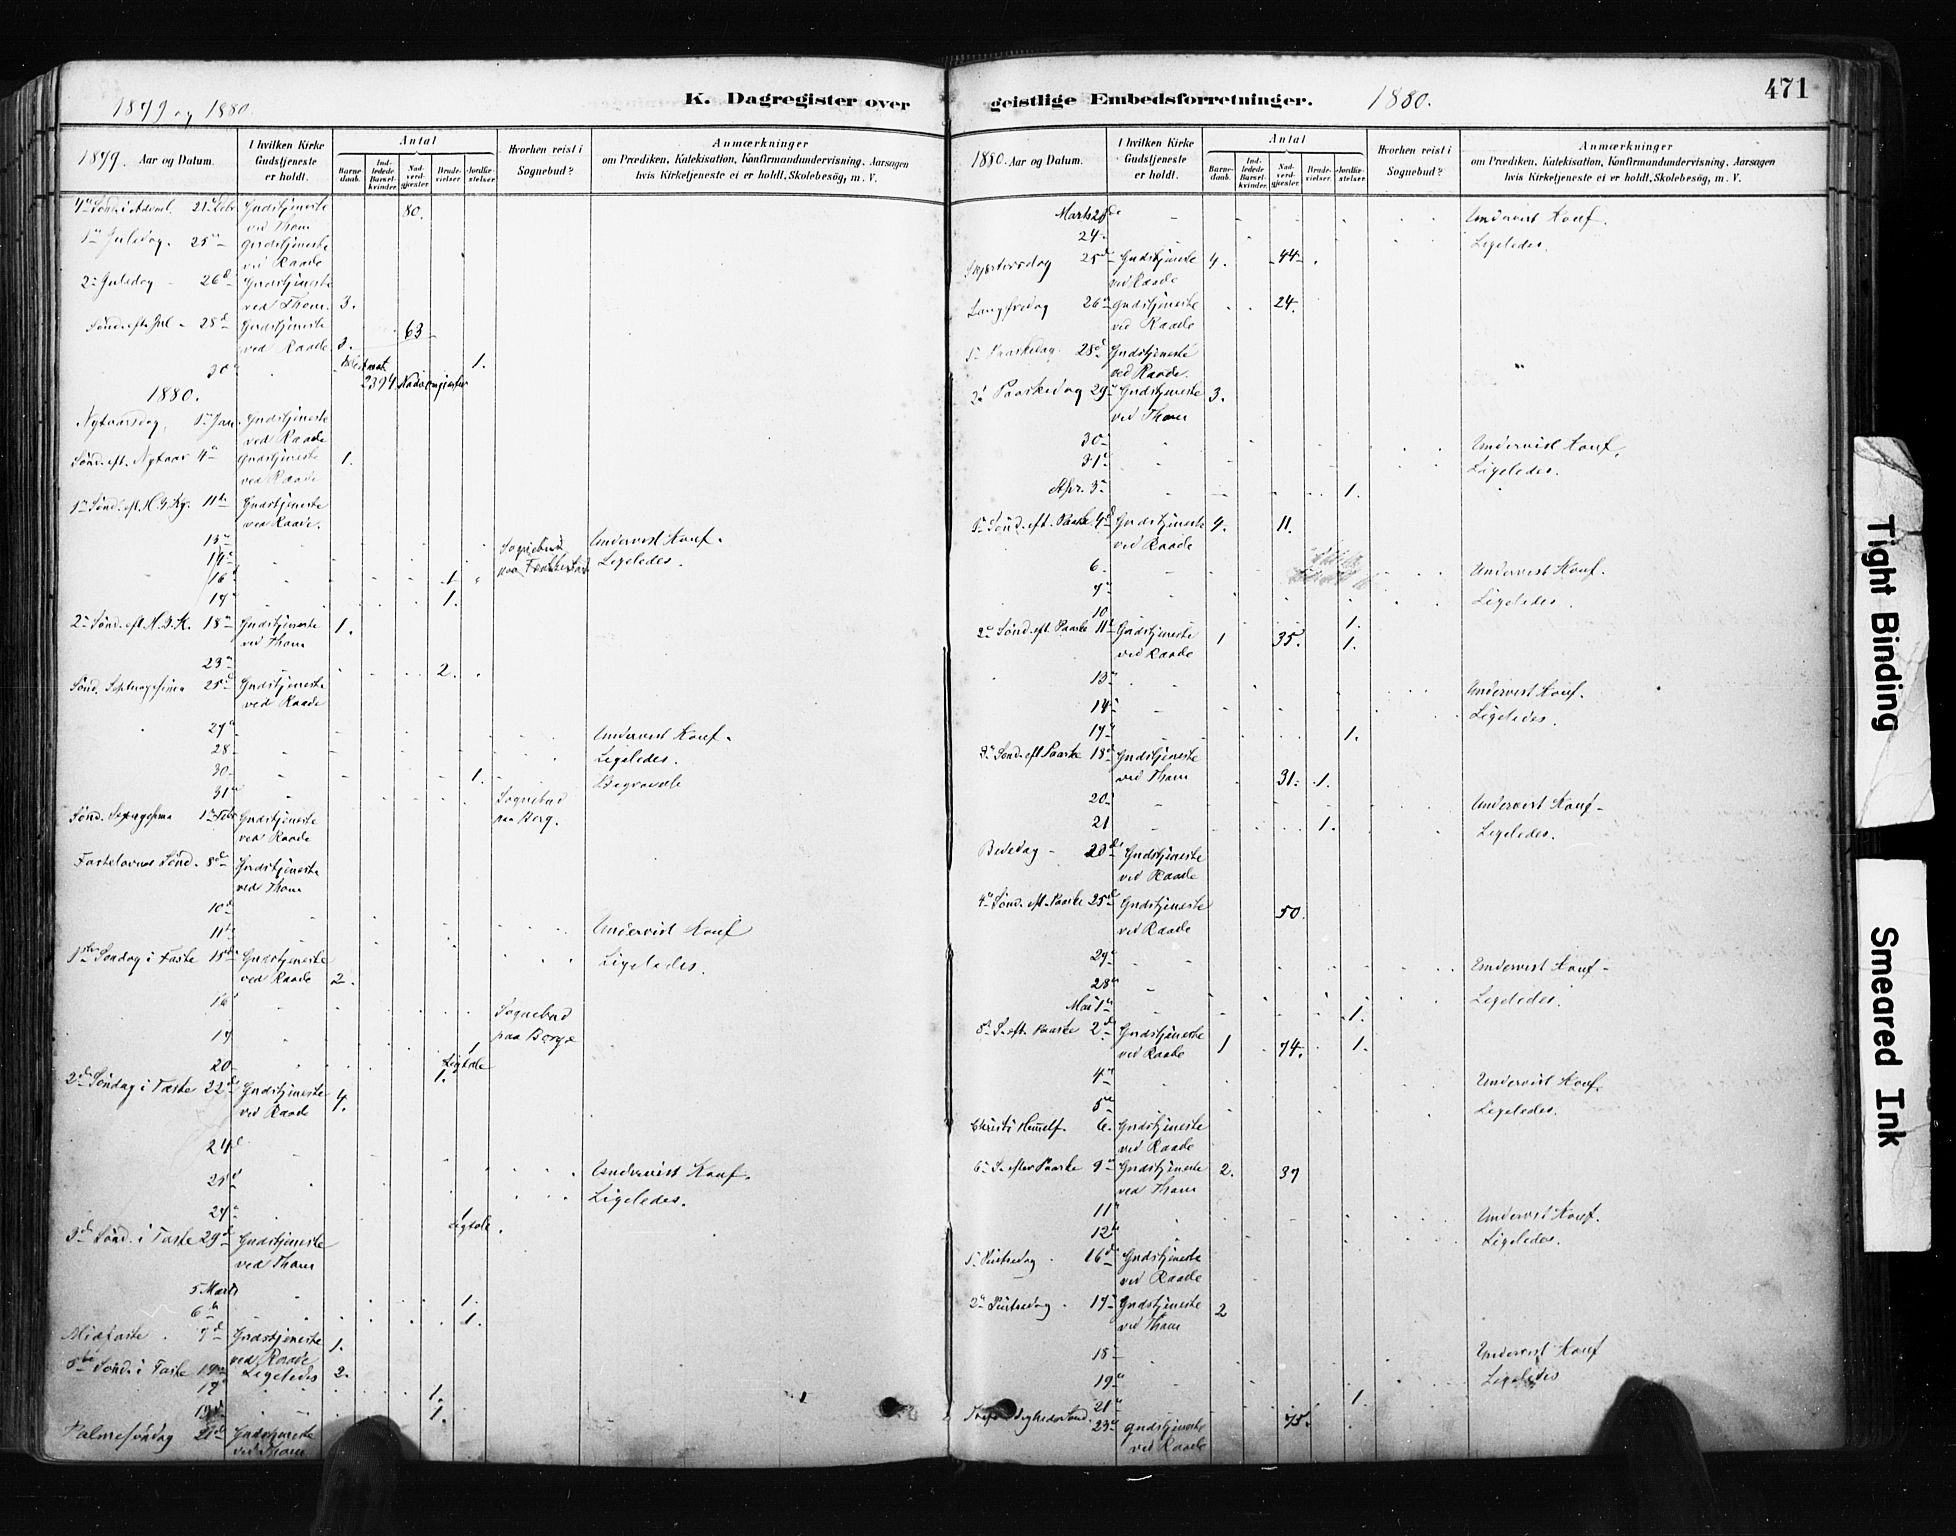 1879 og 1880.
K. Dagregister over
1879. Aar og Datum.
I hvilken Kirke Gudstjeneste er holdt.
Antal
Barnedaab.
Indledede Barselkvinder.
Nadverdgjester.
Brudevielser.
Jordfæstelser.
Hvorhen reist i Sognebud?
Anmærkninger
om Prædiken, Katekisation, Konfirmandundervisning, Aarsagen
hvis Kirketjeneste ei er holdt, Skolebesøg, m. V.
4de Sönd. i Advent. 21de Gudstjeneste 80.
ved Thom
1ste Juledag. 25 Gudstjeneste
ved Raade
2 Juledag 26d Gudstjeneste
ved Thom. 3.
Sönd. eft. Jul 28d Gudstjeneste 63
ved Raade 3.
30 1.
2394 Nadverngjester
1880.
Nytaarsdag, 1ste Jan. Gudstjeneste
ved Raade
Sönd. eft. Nytaar 4 Gudstjeneste 1.
ved Raade
1ste Sönd. eft. H. 3. Kg. 11te Gudstjeneste
ved Raade.
13 Sognebud Undervist Konf.
14 paa Ligeledes.
16 1
17 1.
2 Sönd. eft. H. 3. K. 18 Gudstjeneste 1.
ved Thom
23 2.
Sönd. Septuagesima 25 Gudstjeneste
ved Raade
27 Undervist Konf.
28 Ligeledes.
30 1. Begravele
31 Sognebud
Sönd. Sexagesima 1ste Feb Gudstjeneste paa Berg.
ved Raade
Fastelavns Sönd. 8d Gudstjeneste
ved Thom
10d
11te Undervist Konf
1ste Söndag i Faste 15de Gudstjeneste Ligeledes.
ved Raade 2.
16 Sognebud
17 paa Berge
1
20 Ligtale
2d Söndag i Faste 22d Gudstjeneste 1.
ved Raade 4.
24d
25d Undervist Konf.
Ligeledes.
27 1
Ligtale
3d Sönd. i Faste 29d Gudstjeneste
ved Thom
5 Marts 1.
6 1.
Midfaste. 7d Gudstjeneste 1.
ved Raade
5te Sönd. i Faste 14 Ligeledes 2.
17 1.
19 1.
Palmesöndag 21d Gudstjeneste
ved Thom
geistlige Embedsforretninger.
1880.
471
1880. Aar og Datum.
I hvilken Kirke Gudstjeneste er holdt.
Antal
Barnedaab.
Indledede Barselkvinder.
Nadverdgjester.
Brudevielser.
Jordfæstelser.
Hvorhen reist i Sognebud?
Anmærkninger
om Prædiken, Katekisation, Konfirmandundervisning, Aarsagen
hvis Kirketjeneste ei er holdt, Skolebesøg, m. V.
Marts Undervist Konf.
24. Ligeledes.
Skjærtorsdag 25d Gudstjeneste 4. 44
ved Raade
Langfredag 26 Gudstjeneste 24.
ved Raade
1 Paaskedag 28d Gudstjeneste
ved Raade.
2d Paaskedag 29 Gudstjeneste 3.
ved Thom
30 Undervist Konf.
31 Ligeledes.
Apr. 3 1.
1ste Sönd. eft. Paaske 4d Gudstjeneste 4. 11.
ved Raade
6. Undervist Konf.
7 Ligeledes.
10 1.
2 Sönd. eft. Paaske 11 Gudstjeneste 1 35. 1.
ved Raade
13 Undervist Konf.
14 Ligeledes.
17 1.
3 Sönd. eft Paaske 18d Gudstjeneste
ved Thom 31. 1.
20 Undervist Konf
21 1. Ligeledes.
Bededag Gudstjeneste
ved Raade
4 Sönd. eft. Paaske 25d Gudstjeneste 50.
ved Raade
Undervist Konf
28 Ligeledes.
Mai 1 1.
5 S. eft. Paaske 2d Gudstjeneste
ved Raade 1 74. 1.
4 Undervist Konf.
5 Ligeledes.
Christi Himmelf. 6. Gudstjeneste
ved Raade
6 S. efter Paaske 9 Gudstjeneste 2. 37
ved Thom
11 Undervist Konf.
12 Ligeledes.
1 Pintsedag. 16d Gudstjeneste
ved Raade
2 Pintsedag. 17 Gudstjeneste 2
ved Thom
18 Undervist Konf
19 Ligeledes
21 1.
23 Gudstjeneste 75.
ved Raade
Tight Binding
Smeared Ink